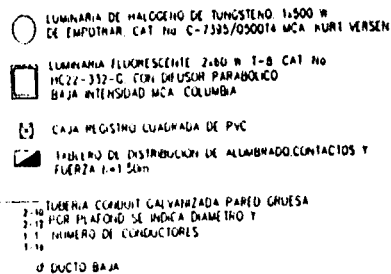 LUMINARIA DE HALOGENO DE TUNGSTENO, 1x500 W
DE EMPOTRAR, CAT No C-7395/050014 MCA KURT VERSEN
LUMINARIA FLUORESCENTE 2x60 W T-8 CAT No
HC22-312-G CON DIFUSOR PARABOLICO
BAJA INTENSIDAD MCA. COLUMBIA
CAJA REGISTRO CUADRADA DE PVC
TABLERO DE DISTRIBUCION DE ALUMBRADO,CONTACTOS Y
FUERZA 1.50m
TUBERIA CONDUIT GALVANIZADA PARED GRUESA
POR PLAFOND SE INDICA DIAMETRO Y
NUMERO DE CONDUCTORES
DUCTO BAJA